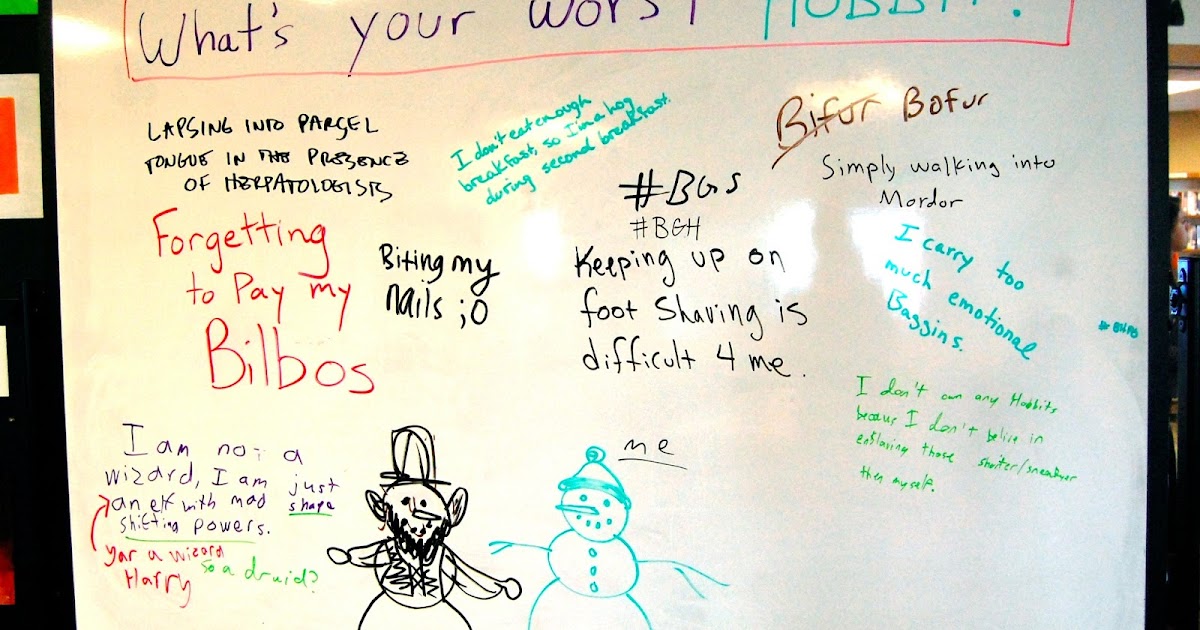 What's your worst HOBBIT?
LAPSING INTO PARSEL
TONGUE IN THE PRESENCE
OF HERPATOLOGISTS
I don't eat enough
breakfast, so I'm a hog
during second breakfast.
Bifur Bofur
Simply walking into
Mordor
#BGS
#BGH
Forgetting
to Pay my
Bilbos
Biting my
nails ;0
Keeping up on
foot Shaving is
difficult 4 me.
I carry too
much emotional
Baggins.
I don't own any Hobbits
becaus I don't belive in
enslaving those shorter/sneakier
then myself.
I am not a
wizard, I am just
an elf with mad shape
shifting powers.
yar a wizard
Harry
so a druid?
me